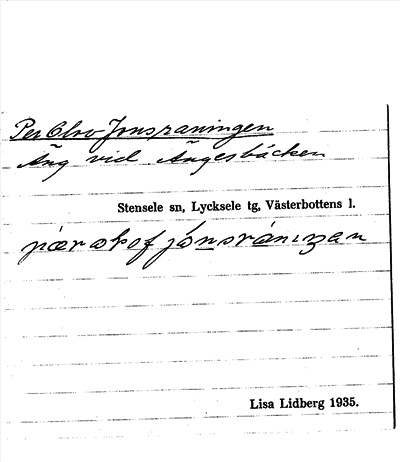 Per Olov Jonsraningen
Äng vid Ängesbäcken
Stensele sn, Lycksele tg, Västerbottens l.
Lisa Lidberg 1935.